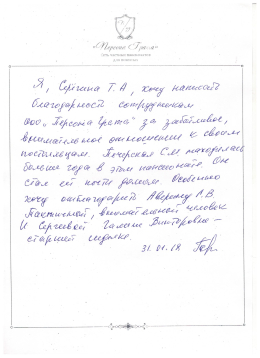 «Персона Грата»
Я, Сергина Т.А, хочу написать
благодарность сотрудникам
ООО „Персона Грата" за заботливое,
внимательное отношение к своим
постояльцам. Печерская С.М находилась
больше года в этом пансионате. Он
стал ей почти домом. Особенно
хочу отблагодарить Аверину Л.В.
Тактичный, внимательный человек
И Сергеевой Галине Викторовне –
старшей сиделке.
31.01.18